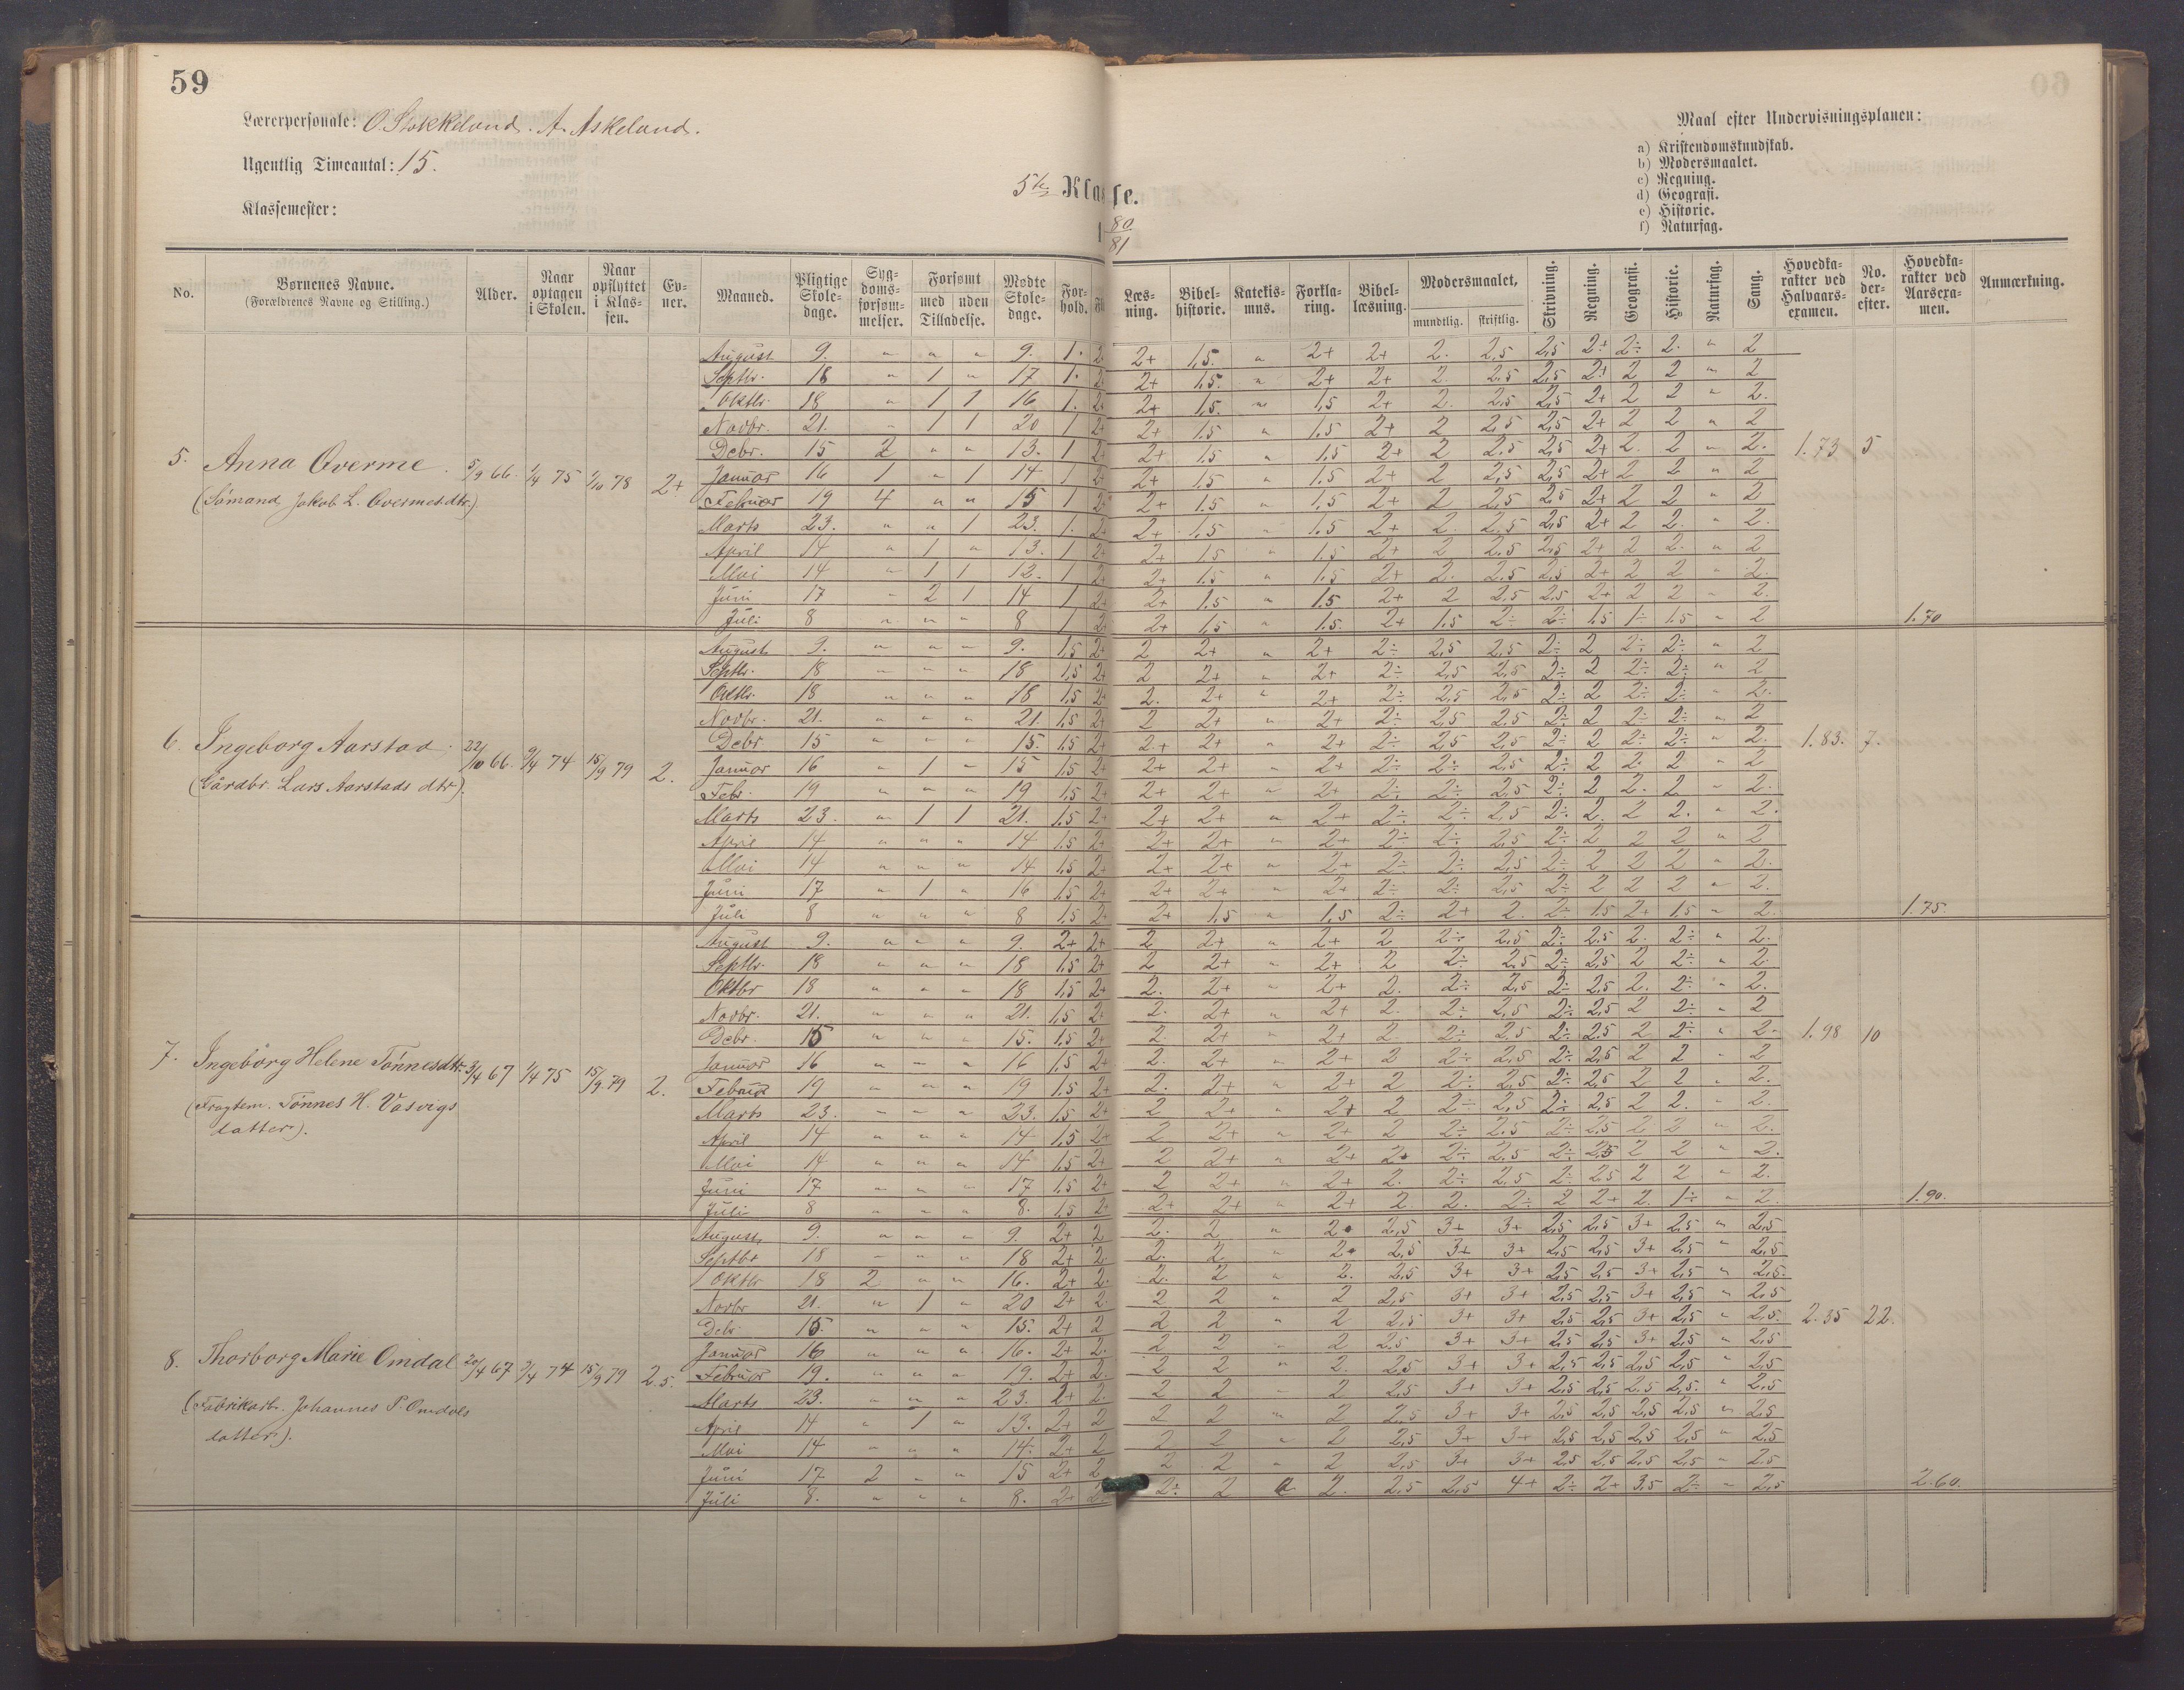 59
Lærerpersonale: O. Stokkeland. A. Askeland.
Ugentlig Timeantal: 15.
Klassemester:
5te Klasse.
1 80/81
Maal efter Undervisningsplanen:
a) Kristendomskundskab.
b) Modersmaalet.
c) Regning.
d) Geografi.
e) Historie.
f) Naturfag.
No. | Børnenes Navne. (Forældrenes Navne og Stilling.) | Alder. | Naar optagen i Skolen. | Naar opflyttet i Klassen. | Evner. | Maaned. | Pligtige Skoledage. | Sygdomsforsømmelser. | Forsømt med / uden Tilladelse. | Mødte Skoledage. | Forhold. | Fli | Læsning. | Bibelhistorie. | Katekismus. | Forklaring. | Bibellæsning. | Modersmaalet, mundtlig. | skriftlig. | Skrivning. | Regning. | Geografi. | Historie. | Naturfag. | Sang. | Hovedkarakter ved Halvaarsexamen. | No. derefter. | Hovedkarakter ved Aarsexamen. | Anmærkning.
5. Anna Overme. 5/9 66. 1/4 75 1/10 78 2+
(Sömand Jakob L. Overmes dtr.)
August 9. " " " 9. 1. 2+ 1,5. " 2+ 2+ 2. 2,5 2,5 2÷ 2÷ 2. " 2
Septbr. 18 " 1 " 17 1. 2+ 1,5. " 2+ 2+ 2. 2,5 2,5 2+ 2 2 " 2
Oktbr. 18 " 1 1 16 1. 2+ 2+ 1,5. " 1,5 2+ 2. 2,5 2,5 2+ 2 2 " 2.
Novbr. 21. " 1 1 20 1 2+ 2+ 1.5 " 1.5 2+ 2 2,5 2,5 2+ 2 2 " 2
Debr. 15 2 " " 13. 1 2+ 2+ 1.5 " 1.5 2+ 2 2,5 2,5 2+ 2. 2 " 2. 1.73 5
Januar 16 1 " 1 14 1 2+ 2+ 1.5 " 1.5 2+ 2 2,5 2,5 2+ 2 2 " 2
Februar 19 4 " " 15 1 2+ 2+ 1.5 " 1,5 2+ 2 2,5 2,5 2+ 2 2 " 2
Marts 23. " " 1 23. 1. 2+ 2+ 1.5 " 1.5 2+ 2. 2,5 2,5 2+ 2 2. " 2.
April 14 " 1 " 13. 1 2+ 2+ 1.5 " 1.5 2+ 2 2.5 2,5 2+ 2 2. " 2
Mai 14 " 1 1 12. 1 2+ 2+ 1.5 " 1.5 2+ 2. 2.5 2,5 2+ 2 2 " 2.
Juni 17 " 2 1 14 1 2+ 2+ 1.5 " 1.5 2+ 2 2.5 2,5 2+ 2 2 " 2.
Juli 8 " " " 8 1 2+ 2+ 1,5 " 1.5. 2+ 1.5 2÷ 2÷ 1.5 1÷ 1.5 " 2 1.70
6. Ingeborg Aarstad. 22/10 66. 9/4 74 15/9 79 2.
(Gårdbr. Lars Aarstads dtr).
August 9. " " " 9. 1,5 2+ 2 2+ " 2+ 2÷ 2,5 2,5 2÷ 2 2÷ 2÷ " 2
Septbr. 18 " " " 18 1,5 2+ 2 2+ " 2+ 2÷ 2,5 2,5 2÷ 2 2÷ 2÷ " 2
Oktbr. 18 " " " 18 1,5 2+ 2. 2+ " 2+ 2÷ 2,5 2,5 2÷ 2 2÷ 2÷ " 2.
Novbr. 21. " " " 21. 1,5 2+ 2 2+ " 2+ 2÷ 2,5 2.5 2÷ 2 2÷ 2÷ " 2
Debr 15 " " " 15. 1.5 2+ 2+ 2+ " 2+ 2÷ 2,5 2,5 2÷ 2 2÷ 2÷ " 2. 1.83. 7.
Januar 16 " 1 " 15 1.5 2+ 2+ 2+ " 2+ 2÷ 2÷ 2,5 2÷ 2 2. 2 " 2
Febr. 19 " " " 19 1,5 2+ 2+ 2+ " 2+ 2÷ 2÷ 2,5 2÷ 2 2. 2 " 2.
Marts 23. " 1 1 21. 1.5 2+ 2+ 2+ " 2+ 2÷ 2÷ 2,5 2÷ 2. 2 2. " 2.
April 14 " " " 14 1.5 2+ 2+ 2+ " 2+ 2÷ 2÷ 2,5 2÷ 2 2 2 " 2
Mai 14 " " " 14 1,5 2+ 2+ 2+ " 2+ 2÷ 2÷ 2,5 2÷ 2 2 2 " 2.
Juni 17 " 1 " 16 1,5 2+ 2+ 2+ " 2+ 2÷ 2÷ 2,5 2÷ 2 2 2 " 2.
Juli 8 " " " 8 1.5 2+ 2+ 1,5 " 1,5 2÷ 2+ 2. 2÷ 1.5 2+ 1.5 " 2. 1.75.
7. Ingebörg Helene Tönnesdtr. 3/4 67 1/4 75 15/9 79 2.
(Fragtem. Tönnes H. Vasvigs
datter).
August 9. " " " 9. 2+ 2+ 2 2+ " 2+ 2 2÷ 2,5 2÷ 2.5 2. 2÷ " 2.
Septbr. 18 " " " 18 1.5 2+ 2 2+ " 2+ 2 2÷ 2,5 2÷ 2,5 2 2÷ " 2.
Oktbr 18 " " " 18 1,5 2+ 2. 2+ " 2+ 2. 2÷ 2,5 2÷ 2,5 2. 2÷ " 2.
Novbr. 21. " " " 21. 1,5 2+ 2. 2+ " 2+ 2. 2÷ 2,5 2÷ 2,5 2 2÷ " 2
Debr. 15 " " " 15. 1,5 2+ 2. 2+ " 2+ 2 2÷ 2,5 2÷ 2.5 2 2÷ " 2. 1.98 10
Januar 16 " " " 16 1,5 2+ 2. 2+ " 2+ 2 2÷ 2,5 2÷ 2,5 2 2 " 2
Februar 19 " " " 19 1.5 2+ 2. 2+ " 2+ 2 2÷ 2,5 2÷ 2,5 2 2 " 2.
Marts 23. " " " 23. 1.5 2+ 2 2+ " 2+ 2 2÷ 2,5 2÷ 2,5 2 2. " 2.
April 14 " " " 14 1,5 2+ 2 2+ " 2+ 2 2÷ 2.5 2÷ 2.5 2 2 " 2.
Mai 14 " " " 14 1.5 2+ 2 2+ " 2+ 2+ 2÷ 2.5 2÷ 2.5 2 2 " 2.
Juni 17 " " " 17 1.5 2+ 2 2+ " 2+ 2. 2÷ 2.5 2÷ 2.5 2 2 " 2.
Juli 8 " " " 8. 1.5 2+ 2+ 2+ " 2+ 2 2. 2÷ 2 2+ 2. 1÷ " 2. 1.90.
8. Thorborg Marie Omdal 20/4 67 3/4 74 15/9 79 2.5.
(Fabrikarb. Johannes P. Omdals
datter).
August 9. " " " 9. 2+ 2 2. 2 " 2 2,5 3+ 3+ 2,5 2,5 3+ 2,5 " 2,5
Septbr 18 " " " 18 2+ 2. 2. 2. " 2 2,5 3+ 3+ 2,5 2,5 3+ 2,5 " 2,5
Oktbr 18 2 " " 16. 2+ 2. 2. 2 " 2. 2,5 3+ 3+ 2,5 2,5 3+ 2,5 " 2,5.
Novbr 21. " 1 " 20 2+ 2. 2 2 " 2 2,5 3+ 3+ 2,5 2,5 3+ 2,5 " 2,5
Debr. 15. " " " 15. 2+ 2 2 2 " 2 2,5 3+ 3+ 2,5 2,5 3+ 2,5 " 2,5. 2.35 22.
Januar 16 " " " 16. 2+ 2. 2 2 " 2 2.5 3+ 3+ 2,5 2,5 3+ 2,5 " 2,5
Februar 19. " " " 19. 2+ 2. 2 2 " 2. 2,5 3+ 3+ 2,5 2,5 2,5 2,5 " 2,5
Marts 23. " " " 23. 2+ 2. 2 2 " 2 2,5 3+ 3+ 2,5 2,5 2.5 2,5. " 2,5
April 14 " 1 " 13. 2+ 2 2 2 " 2 2,5 3+ 3+ 2,5 2,5 2,5 2,5 " 2,5
Mai 14 " " " 14. 2+ 2 2 2 " 2 2,5 3+ 3+ 2,5 2,5 2,5 2,5 " 2,5
Juni 17 2 " " 15 2+ 2 2 2 " 2 2,5 3+ 3+ 2,5 2,5 2,5 2,5 " 2.5
Juli 8. " " " 8. 2+ 2÷ 2 2. 2,5 2,5 4+ 2÷ 2+ 3,5 2÷ " 2,5 2.60.